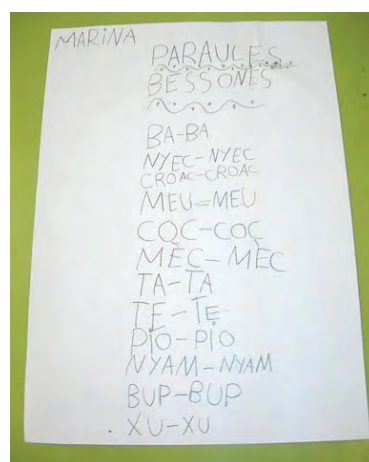 MARiNA
PARAULES
BESSONES
BA-BA
NYEC-NYEC
CROAC-CROAC
MEU-MEU
COC-COC
MÈC-MÈC
TA-TA
TE-TE
PIO-PIO
NYAM-NYAM
BUP-BUP
XU-XU